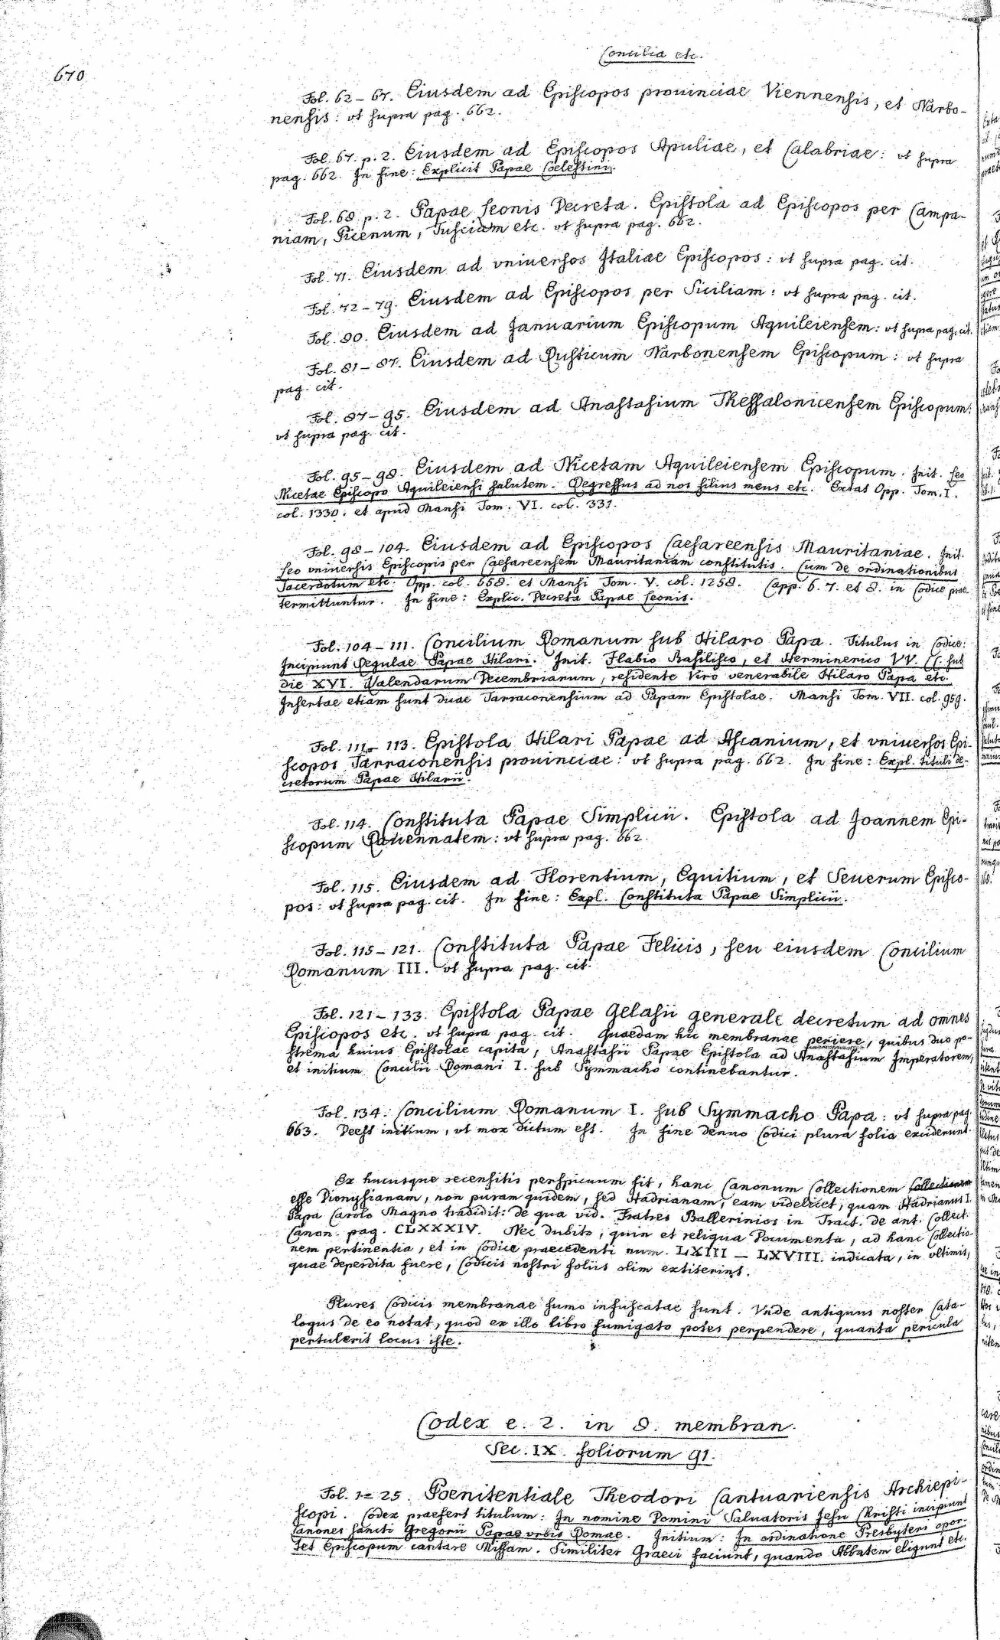 Concilia etc.
670
Fol. 62 – 67. Eiusdem ad Episcopos prouinciae Viennensis, et Narbo-
nensis: vt supra pag. 662.
Fol. 67. p. 2. Eiusdem ad Episcopos Apuliae, et Calabriae: vt supra
pag. 662. In fine: Explicit Papae Coelestini.
Fol. 68 p. 2. Papae Leonis Decreta. Epistola ad Episcopos per Campa-
niam, Picenum, Tusciam etc. vt supra pag. 662.
Fol. 71. Eiusdem ad vniuersos Italiae Episcopos: vt supra pag. cit.
Fol. 72 – 79. Eiusdem ad Episcopos per Siciliam: vt supra pag. cit.
Fol. 80. Eiusdem ad Januarium Episcopum Aquileiensem: vt supra pag. cit.
Fol. 81 – 87. Eiusdem ad Rusticum Narbonensem Episcopum: vt supra
pag. cit.
Fol. 87 – 95. Eiusdem ad Anastasium Thessalonicensem Episcopum:
vt supra pag. cit.
Fol. 95 – 98. Eiusdem ad Nicetam Aquileiensem Episcopum. Init. Leo
Nicetae Episcopo Aquileiensi salutem. Regressus ad nos filius meus etc. Extat Opp. Tom. I.
col. 1330. et apud Mansi Tom. VI. col. 331.
Fol. 98 – 104. Eiusdem ad Episcopos Caesareensis Mauritaniae. Init.
Leo vniuersis Episcopis per Caesareensem Mauritaniam constitutis. Cum de ordinationibus
Sacerdotum etc. Opp. col. 658. et Mansi Tom. V. col. 1258. Capp. 6. 7. et 8. in Codice prae-
termittuntur. In fine: Explic. Decreta Papae Leonis.
Fol. 104 – 111. Concilium Romanum sub Hilaro Papa. Titulus in Codice:
Incipiunt Regulae Papae Hilari. Init. Flabio Basilisco, et Herminerico VV. CC. sub
die XVI. Kalendarum Decembrianum, residente Viro venerabile Hilaro Papa etc.
Insertae etiam sunt duae Tarraconensium ad Papam Epistolae. Mansi Tom. VII. col. 959.
Fol. 111 – 113. Epistola Hilari Papae ad Ascanium, et vniuersos Epi-
scopos Tarraconensis prouinciae: vt supra pag. 662. In fine: Expl. tituli de-
cretorum Papae Hilarii.
Fol. 114. Constituta Papae Simplicii. Epistola ad Joannem Epi-
scopum Rauennatem: vt supra pag. 662.
Fol. 115. Eiusdem ad Florentium, Equitium, et Seuerum Episco-
pos: vt supra pag. cit. In fine: Expl. Constituta Papae Simplicii.
Fol. 115 – 121. Constituta Papae Felicis, seu eiusdem Concilium
Romanum III. vt supra pag. cit.
Fol. 121 – 133. Epistola Papae Gelasii generale decretum ad omnes
Episcopos etc. vt supra pag. cit. Quaedam hic membranae periere, quibus duo po-
strema huius Epistolae capita, Anastasii Papae Epistola ad Anastasium Imperatorem,
et initium Concilii Romani I. sub Symmacho continebantur.
Fol. 134. Concilium Romanum I. sub Symmacho Papa: vt supra pag.
663. Deest initium, vt mox dictum est. In fine denuo Codici plura folia exciderunt.
Ex hucusque recensitis perspicuum fit, hanc Canonum Collectionem
esse Dionysianam, non puram quidem, sed Hadrianam, eam videlicet, quam Hadrianus I.
Papa Carolo Magno tradidit: de qua vid. Fratres Ballerinios in Tract. de ant. Collect.
Canon. pag. CLXXXIV. Nec dubito, quin et reliqua Documenta, ad hanc Collectio-
nem pertinentia, et in Codice praecedenti num. LXIII – LXVIII. indicata, in vltimis,
quae deperdita fuere, Codicis nostri foliis olim extiterint.
Plures Codicis membranae fumo infuscatae sunt. Vnde antiquus noster Cata-
logus de eo notat, quod ex illo libro fumigato potes perpendere, quanta pericula
pertulerit locus iste.
Codex e. 2. in 8. membran.
Sec. IX. foliorum 91.
Fol. 1 – 25. Poenitentiale Theodori Cantuariensis Archiepi-
scopi. Codex praefert titulum: In nomine Domini Saluatoris Jesu Christi incipiunt
Canones sancti Gregorii Papae vrbis Romae. Initium: In ordinatione Presbyteri opor-
tet Episcopum cantare Missam. Similiter Graeci faciunt, quando Abbatem eligunt etc.